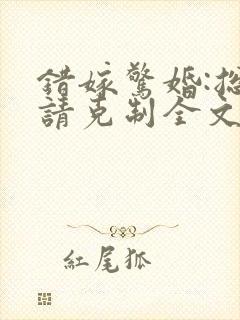 錯嫁驚婚:
請克制全文
紅尾狐